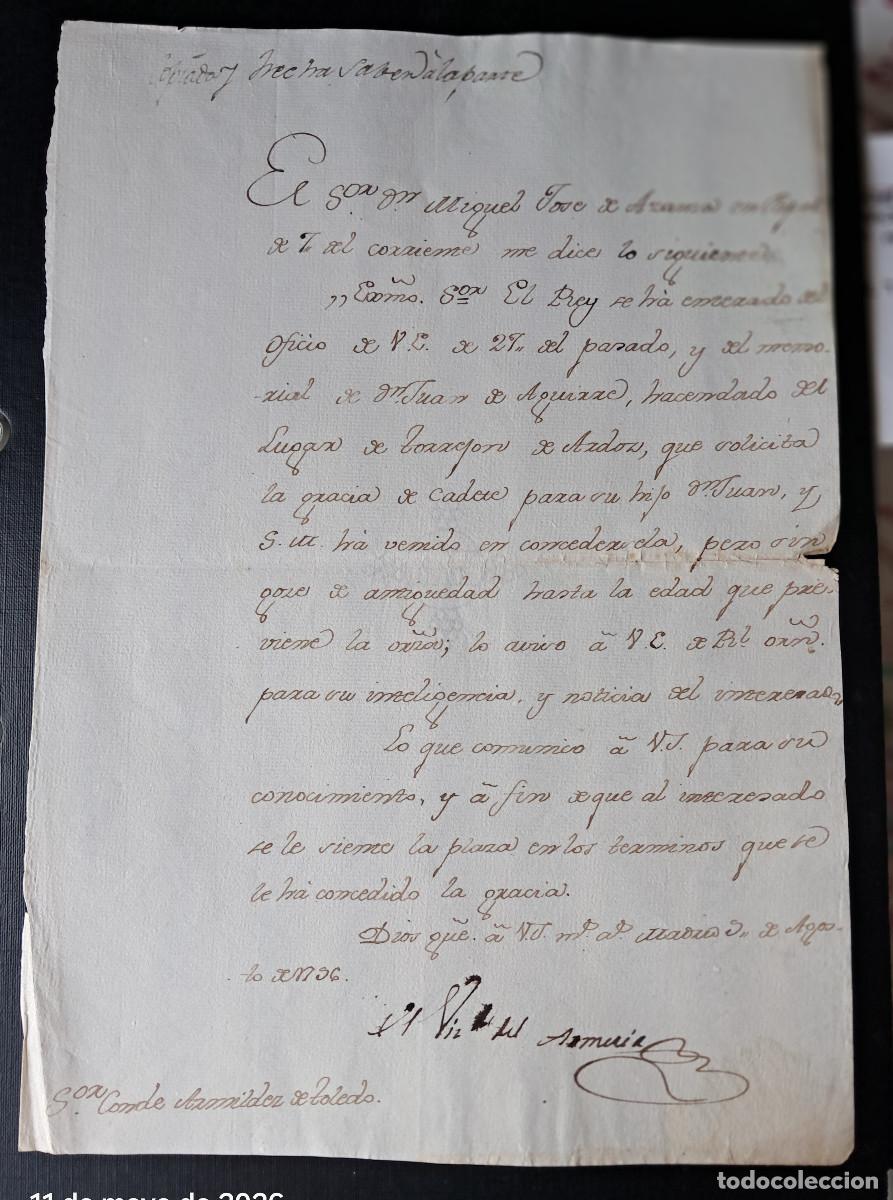 hecha saber â la parte
El S.or d.n Miguel Josè de Azanza en
de 7.. del corriente me dice lo siguiente
,,Exmo. S.or El Rey se há enterado del
Oficio de V.E. de 27.. del pasado, y del memo-
-rial de d.n Juan de Aguirre, hacendado del
Lugar de torrejon de Ardoz, que solicita
la gracia de Cadete para su hijo d.n Juan, y
S.M. há venido en concedersela, pero sin
goze de antiguedad hasta la edad que pre-
viene la orñza; lo aviso â V.E. de Rl. orñ.
para su inteligencia, y noticia del interesado,,
Lo que comunico â V.S. para su
conocimiento, y â fin de que al interesado
se le siente la plaza en los terminos que se
le há concedido la gracia.
Dios gũe. â V.S. m.s a.s Madrid 9.. de Agos-
to de 1796.
El del Armeria
S.or Conde Armildez de toledo.
11 de mayo de 2026
todocoleccion